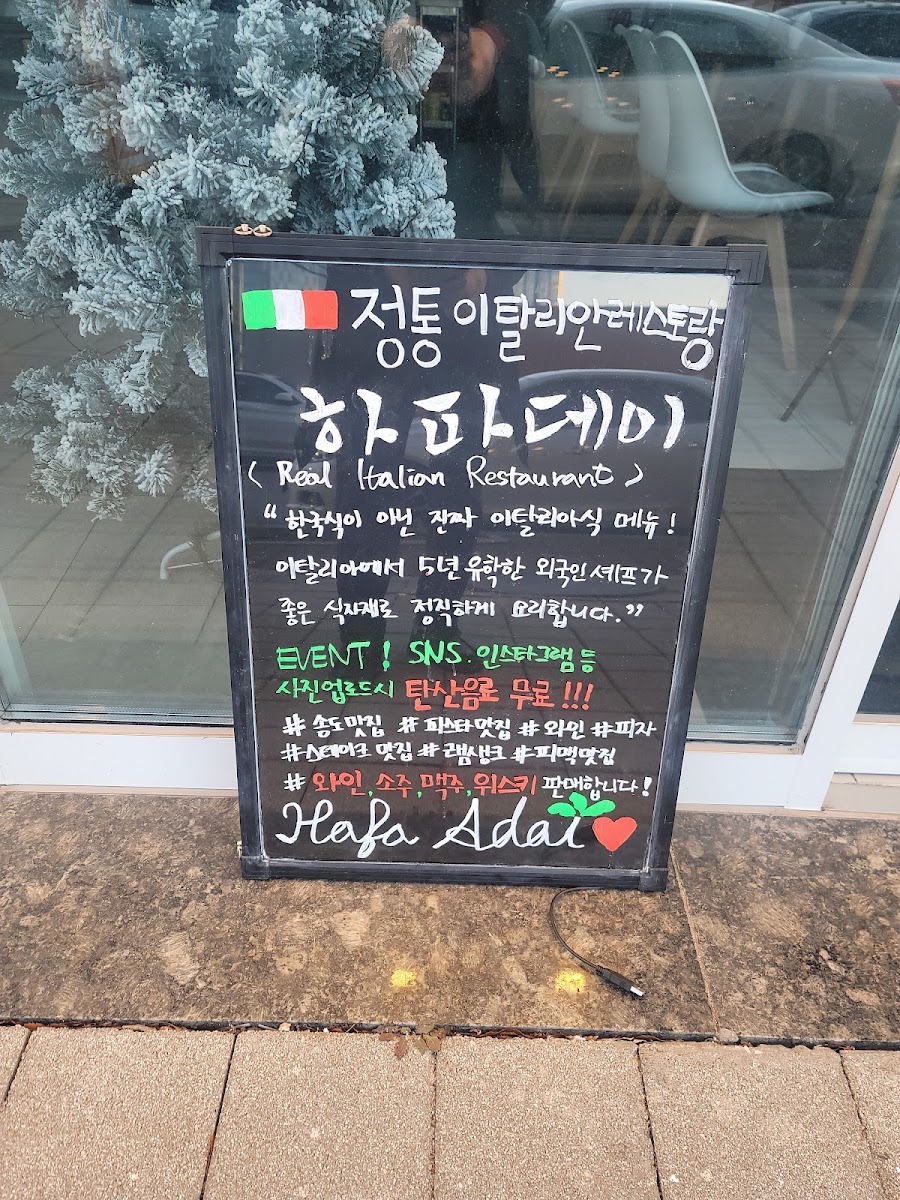 정통 이탈리안레스토랑
하파데이
< Real Italian Restaurant >
“ 한국식이 아닌 진짜 이탈리아식 메뉴!
이탈리아에서 5년 유학한 외국인 셰프가
좋은 식자재로 정직하게 요리합니다.”
EVENT! SNS. 인스타그램 등
사진업로드시 탄산음료 무료!!!
# 송도맛집 # 파스타맛집 # 와인 # 피자
#스테이크 맛집 # 램생크 # 피맥맛집
# 와인,소주,맥주,위스키 판매합니다!
Hafa Adai